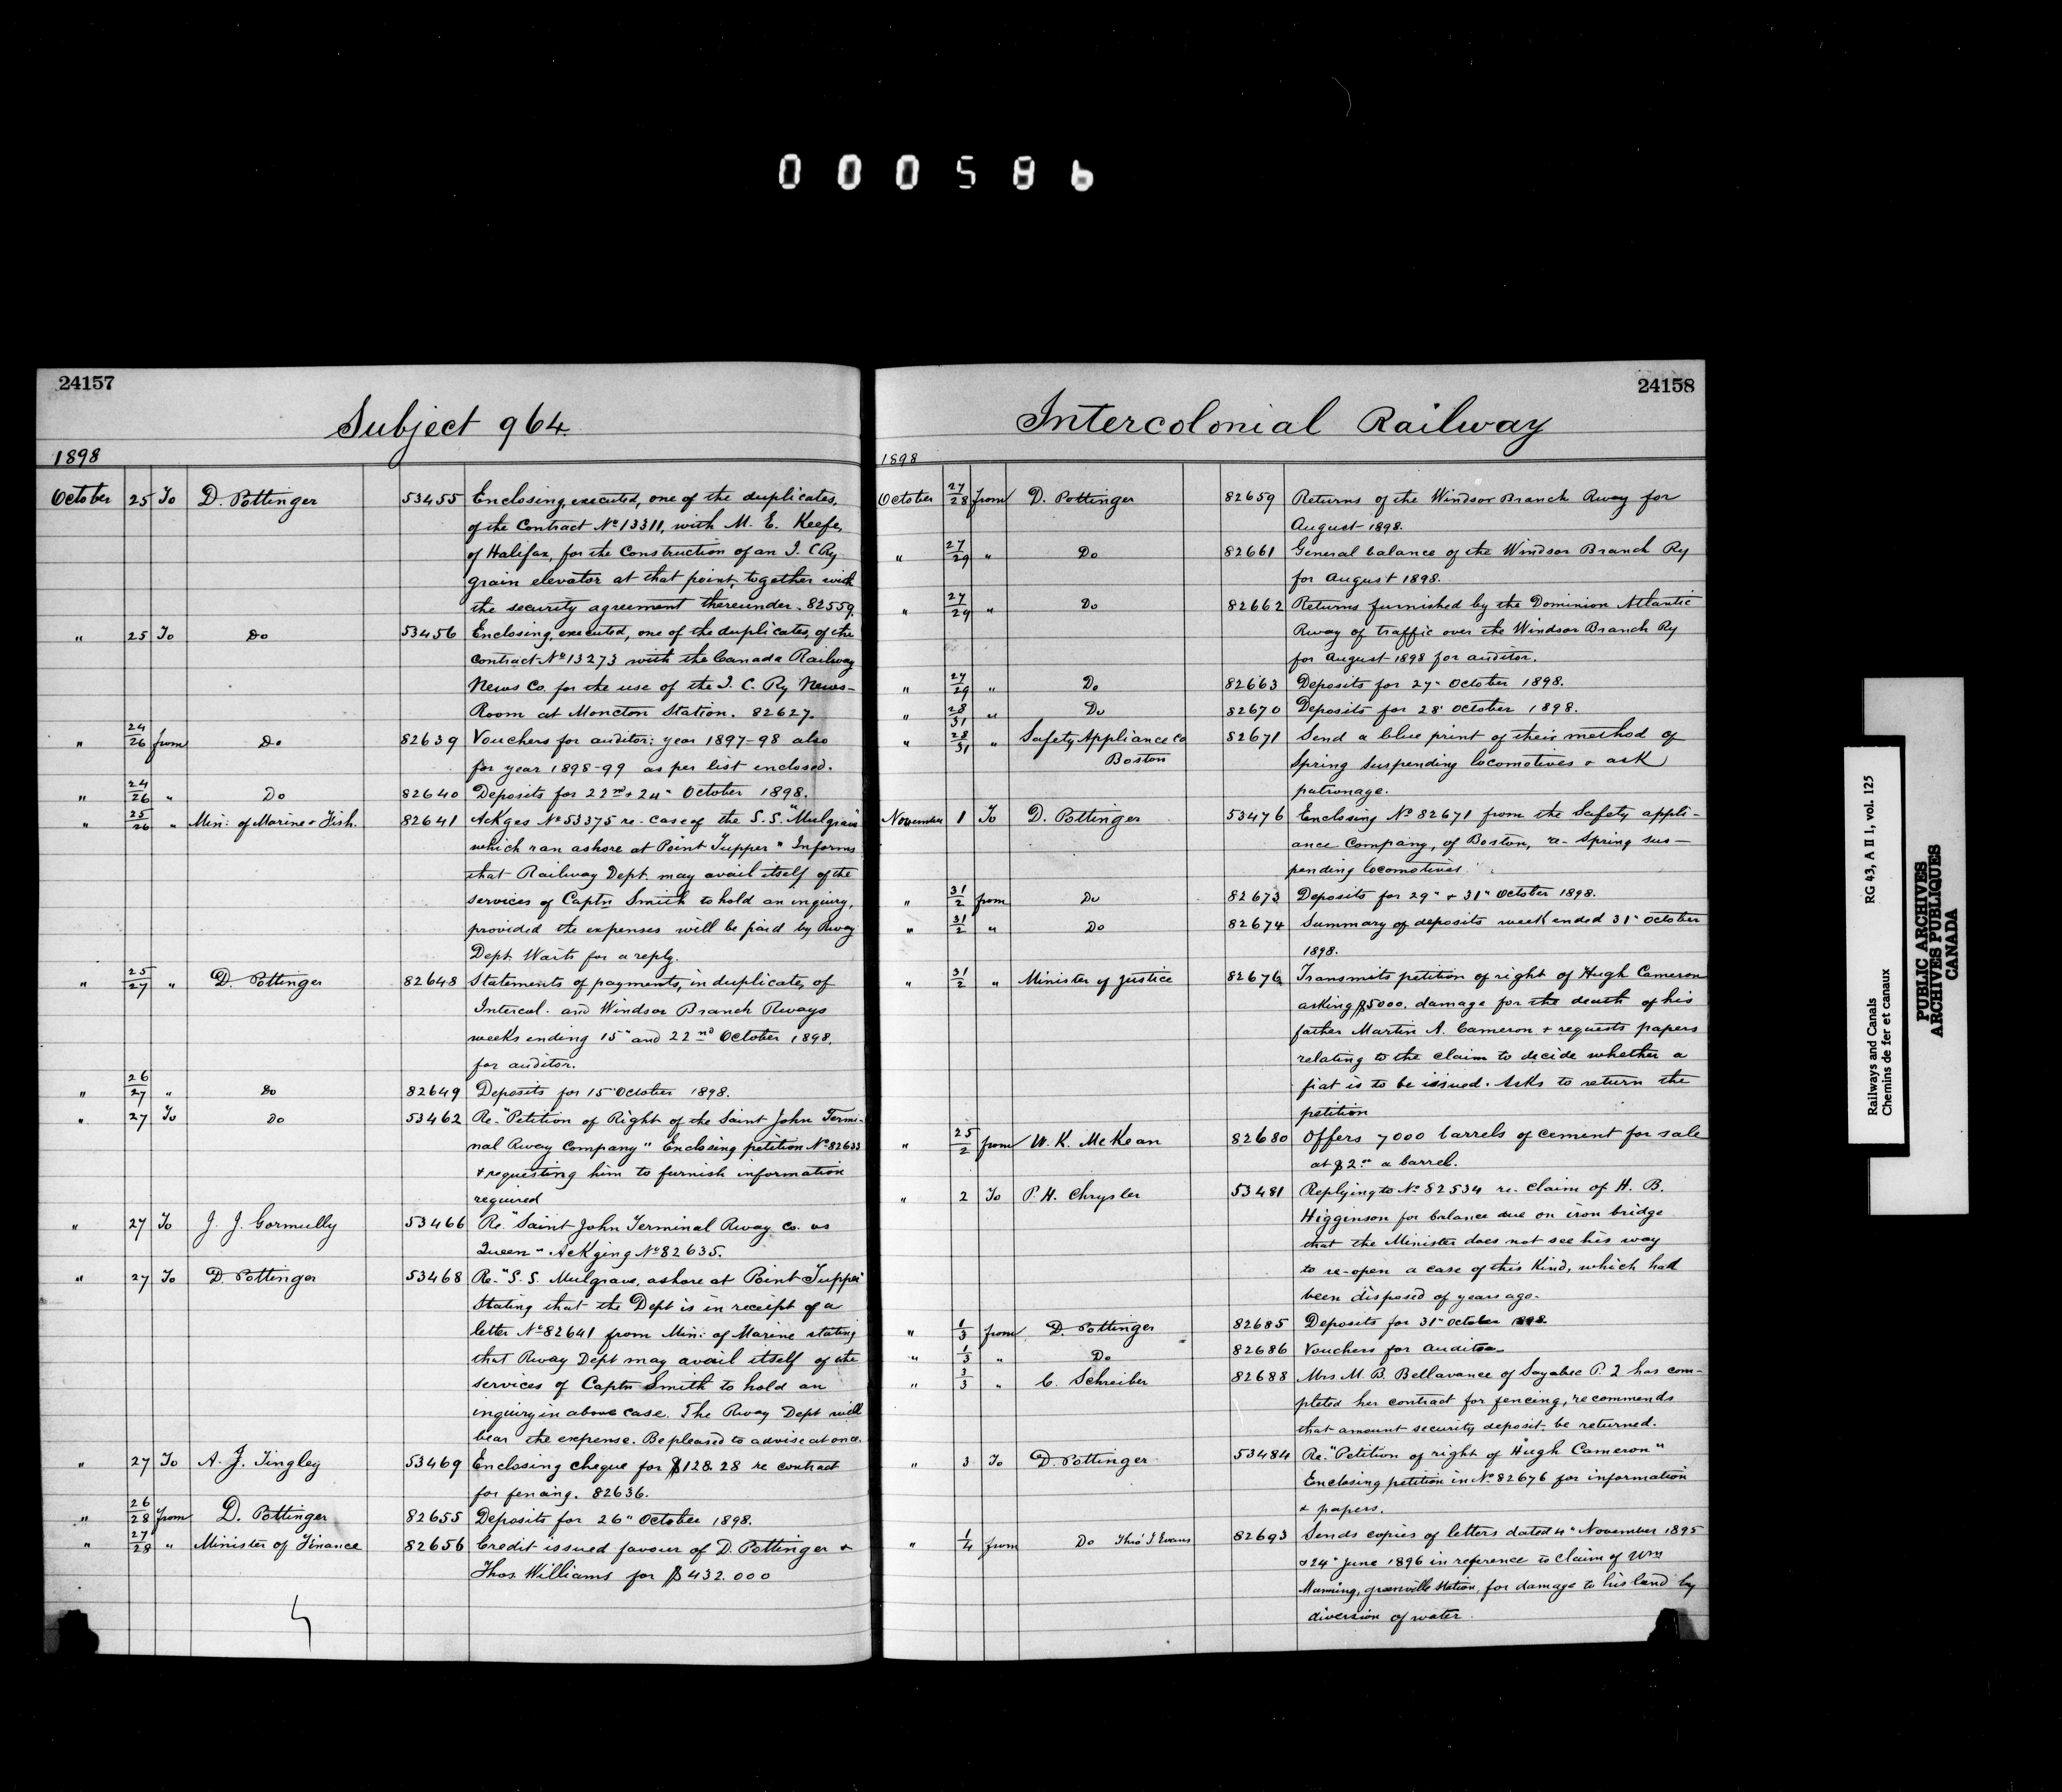 000586
24157
Subject 964.
1898
October 25 To D. Pottinger 53455 Enclosing, executed, one of the duplicates,
of the Contract No 13311, with M. E. Keefe,
of Halifax, for the Construction of an I. C Ry
grain elevator at that point, together with
the security agreement thereunder. 82559.
" 25 To Do 53456 Enclosing, executed, one of the duplicates, of the
Contract No 13273 with the Canada Railway
News Co. for the use of the I. C. Ry News-
Room at Moncton Station. 82627.
" 24/26 from Do 82639 Vouchers for auditor: year 1897-98 also
for year 1898-99 as per list enclosed.
" 24/26 " Do 82640 Deposits for 22nd + 24" October 1898.
" 25/26 " Min: of Marine + Fish. 82641 Ackges No 53375 re- case of the S.S. "Mulgrave"
which ran ashore at Point Tupper" Informs
that Railway Dept. may avail itself of the
services of Captn Smith to hold an inquiry,
provided the expenses will be paid by Rway
Dept. Waits for a reply.
" 25/27 " D. Pottinger 82648 Statements of payments, in duplicate, of
Intercol. and Windsor Branch Rways
weeks ending 15" and 22nd October 1898.
for auditor.
" 26/27 " Do 82649 Deposits for 15" October 1898.
" 27 To Do 53462 Re- "Petition of Right of the Saint John Termi-
nal Rway Company" Enclosing petition No 82633
+ requesting him to furnish information
required
" 27 To J. J. Gormully 53466 Re. "Saint John Terminal Rway Co. vs
Queen" - Ackging No 82635.
" 27 To D. Pottinger 53468 Re- "S. S. Mulgrave, ashore at Point Tupper"
Stating that the Dept is in receipt of a
letter No 82641 from Min: of Marine stating
that Rway Dept may avail itself of the
services of Captn Smith to hold an
inquiry in above case. The Rway Dept will
bear the expense. Be pleased to advise at once.
" 27 To A. J. Tingley 53469 Enclosing cheque for $128.28 re contract
for fencing. 82636.
" 26/28 from D. Pottinger 82655 Deposits for 26" October 1898.
" 27/28 " Minister of Finance 82656 Credit issued favour of D. Pottinger +
Thos. Williams for $432.000
24158
Intercolonial Railway
1898
October 27/28 from D. Pottinger 82659 Returns of the Windsor Branch Rway for
August 1898.
" 27/29 " Do 82661 General balance of the Windsor Branch Ry
for August 1898.
" 27/29 " Do 82662 Returns furnished by the Dominion Atlantic
Rway of traffic over the Windsor Branch Ry
for August 1898 for auditor.
" 27/29 " Do 82663 Deposits for 27" October 1898.
" 28/31 " Do 82670 Deposits for 28" October 1898.
" 28/31 " Safety Appliance Co 82671 Send a blue print of their method of
Boston Spring suspending locomotives + ask
patronage.
November 1 To D. Pottinger 53476 Enclosing No 82671 from the Safety appli-
ance Company, of Boston, re- Spring sus-
pending locomotives
" 31/2 from Do 82673 Deposits for 29" + 31" October 1898.
" 31/2 " Do 82674 Summary of deposits week ended 31" October
1898.
" 31/2 " Minister of Justice 82676 Transmits petition of right of Hugh Cameron
asking $5000. damage for the death of his
father Martin A. Cameron + requests papers
relating to the claim to decide whether a
fiat is to be issued. Asks to return the
petition
" 25/2 from W. K. McKean 82680 Offers 7000 barrels of cement for sale
at $2.00 a barrel.
" 2 To P. H. Chrysler 53481 Replying to No 82534 re. claim of H. B.
Higginson for balance due on iron bridge
that the Minister does not see his way
to re-open a case of this kind, which had
been disposed of years ago.
" 1/3 from D. Pottinger 82685 Deposits for 31st October 1898
" 1/3 " Do 82686 Vouchers for Auditor
" 3/3 " C. Schreiber 82688 Mrs M. B. Bellavance of Sayabec P. Q has com-
pleted her contract for fencing, recommends
that amount security deposit be returned.
" 3 To D. Pottinger 53484 Re. "Petition of right of Hugh Cameron"
Enclosing petition in No 82676 for information
& papers.
" 1/4 from Do Thos J Evans 82693 Sends copies of letters dated 4" November 1895
+ 24" June 1896 in reference to claim of Wm
Manning, Greenville Station, for damage to his land by
diversion of water
RG 43, A II 1, vol. 125
Railways and Canals
Chemins de fer et canaux
PUBLIC ARCHIVES
ARCHIVES PUBLIQUES
CANADA